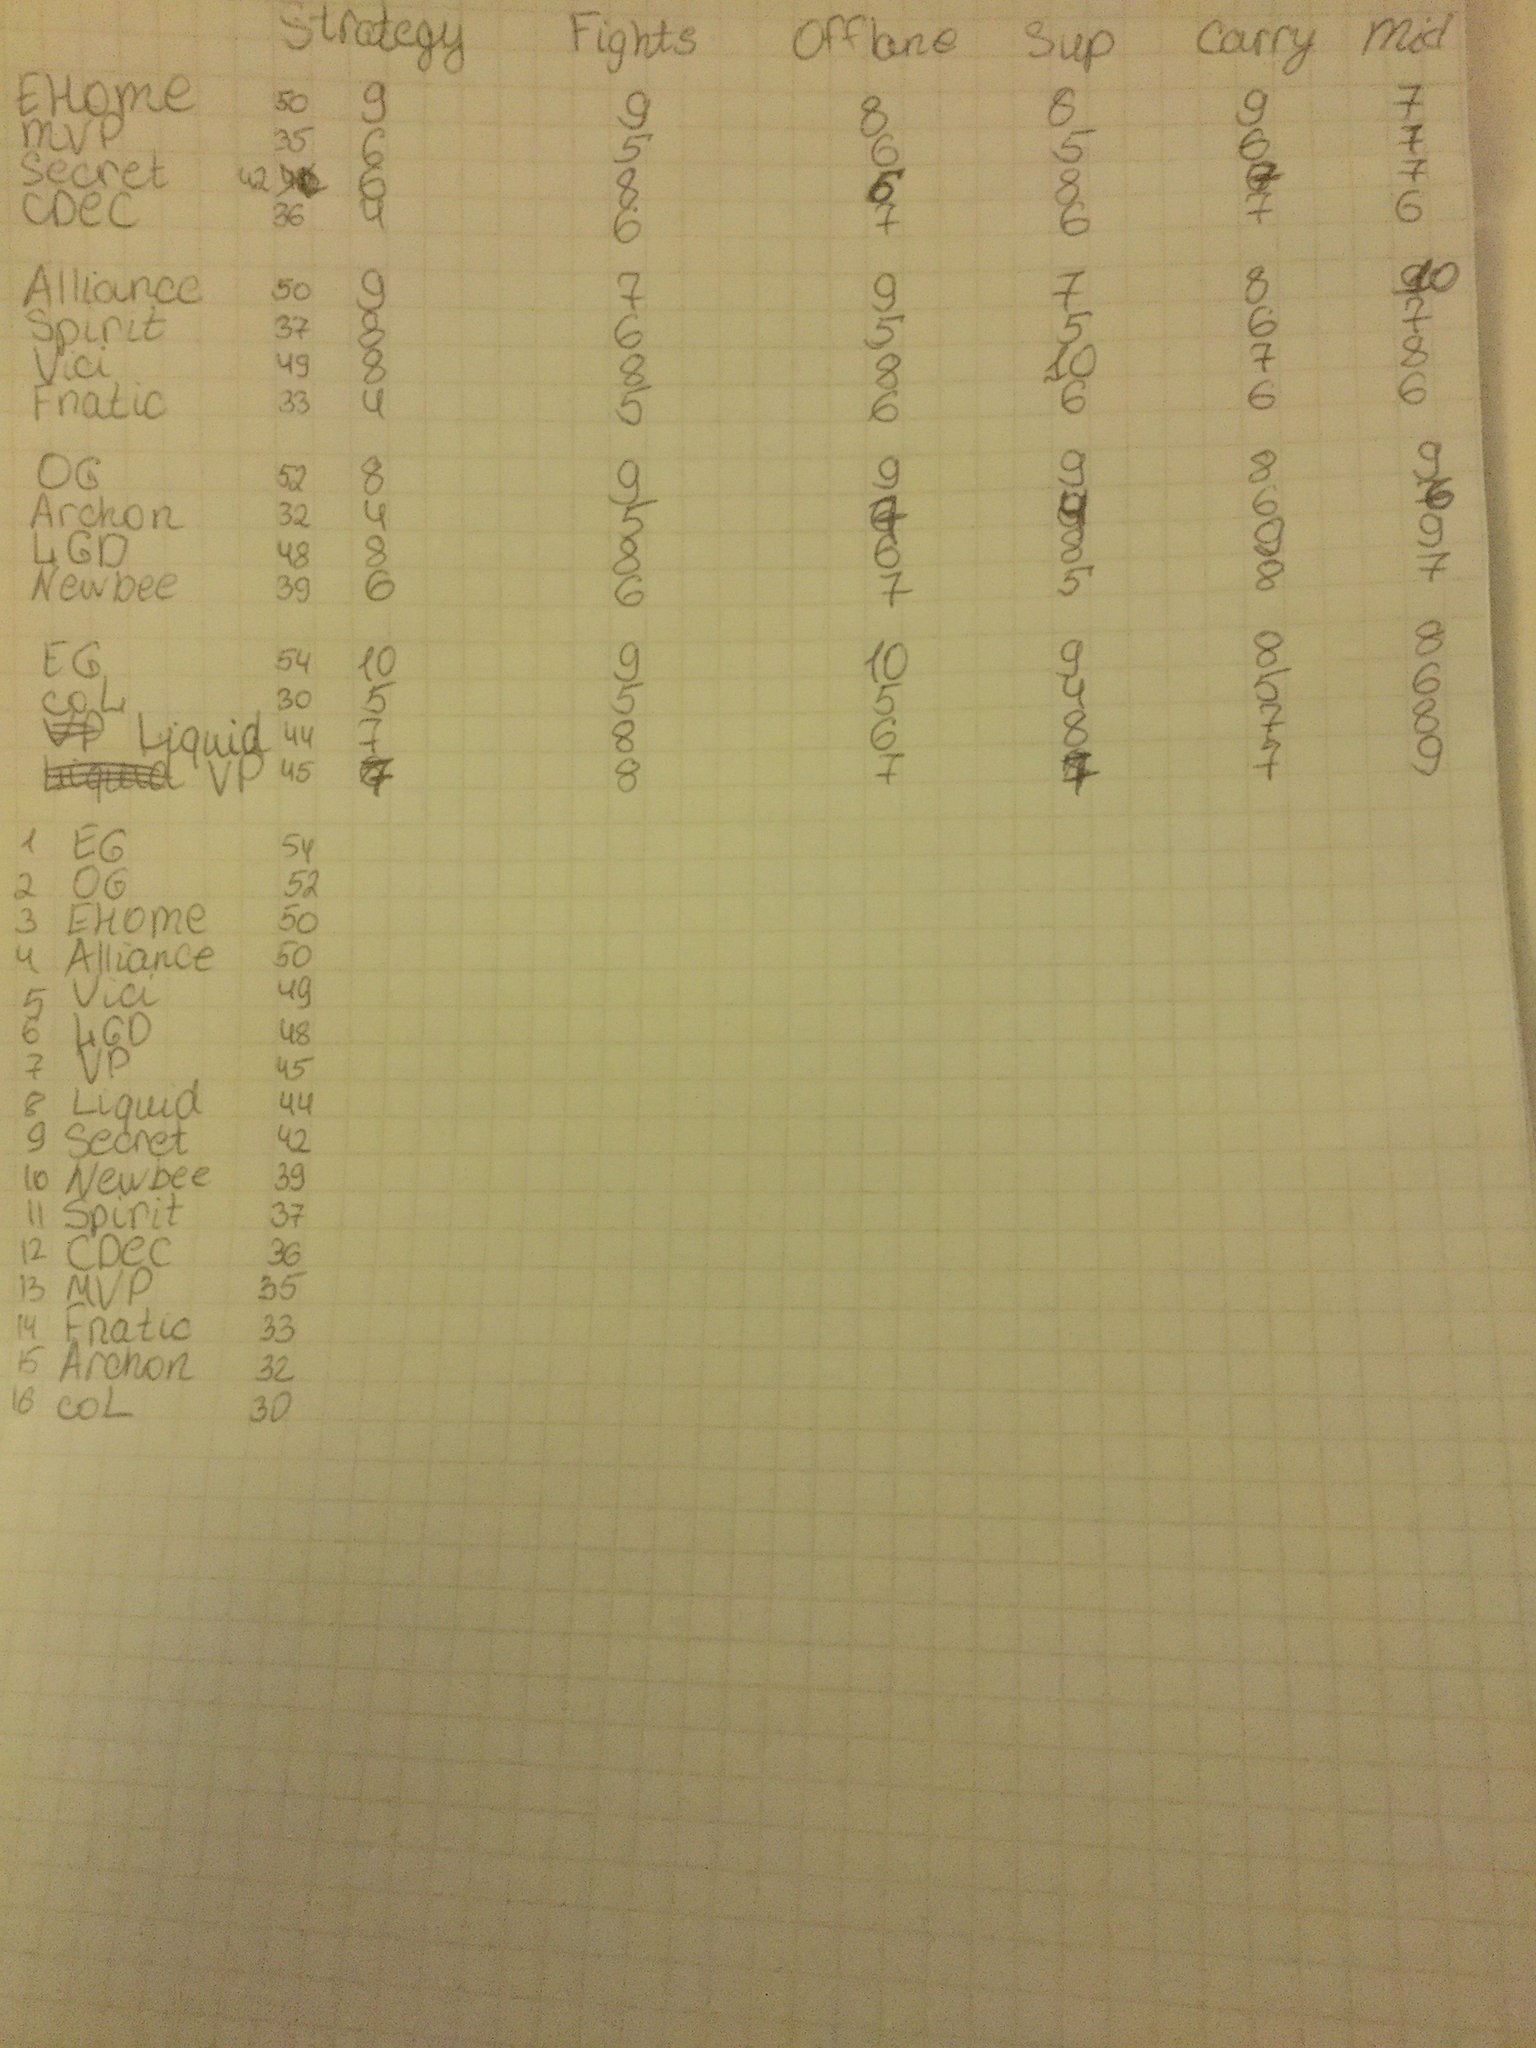 Strategy Fights Offlane Sup Carry Mid
EHome 50 9 9 8 8 9 7
MVP 35 6 5 6 5 6 7
Secret 42 6 8 6 8 7 7
CDEC 36 4 6 7 6 7 6
Alliance 50 9 7 9 7 8 10
Spirit 37 8 6 5 5 6 7
Vici 49 8 8 8 10 7 8
Fnatic 33 4 5 6 6 6 6
OG 52 8 9 9 9 8 9
Archon 32 4 5 7 4 6 6
LGD 48 8 8 6 8 9 9
Newbee 39 6 6 7 5 8 7
EG 54 10 9 10 9 8 8
coL 30 5 5 5 4 5 6
VP Liquid 44 7 8 6 8 7 8
Liquid VP 45 7 8 7 7 7 9
1 EG 54
2 OG 52
3 EHome 50
4 Alliance 50
5 Vici 49
6 LGD 48
7 VP 45
8 Liquid 44
9 Secret 42
10 Newbee 39
11 Spirit 37
12 CDEC 36
13 MVP 35
14 Fnatic 33
15 Archon 32
16 coL 30